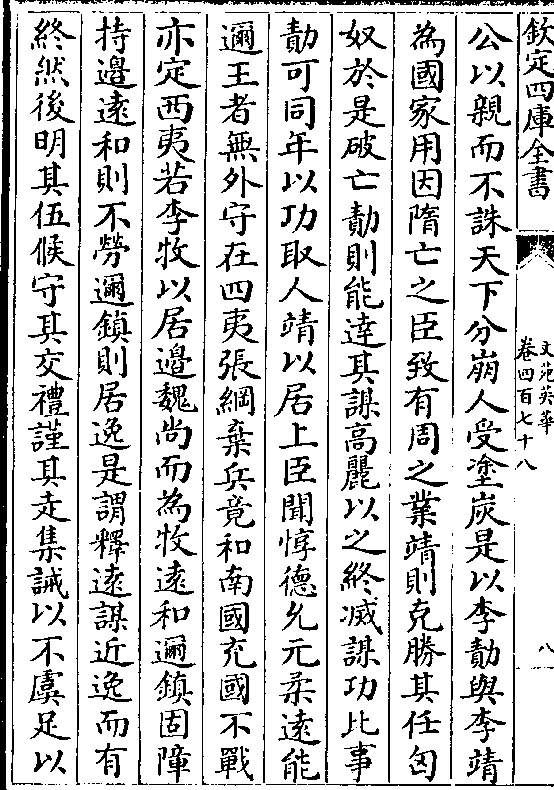 欽定四庫全書
文苑英華
卷四百七十八
八
公以親而不誅天下分崩人受塗炭是以李勣與李靖
為國家用因隋亡之臣致有周之業靖則克勝其任匈
奴於是破亡勣則能達其謀高麗以之終滅謀功比事
勣可同年以功取人靖以居上臣聞惇德允元柔遠能
邇王者無外守在四夷張綱棄兵竟和南國充國不戰
亦定西夷若李牧以居邊魏尚而為牧遠和邇鎮固障
持邊遠和則不勞邇鎮則居逸是謂釋遠謀近逸而有
終然後明其伍候守其交禮謹其走集誡以不虞足以